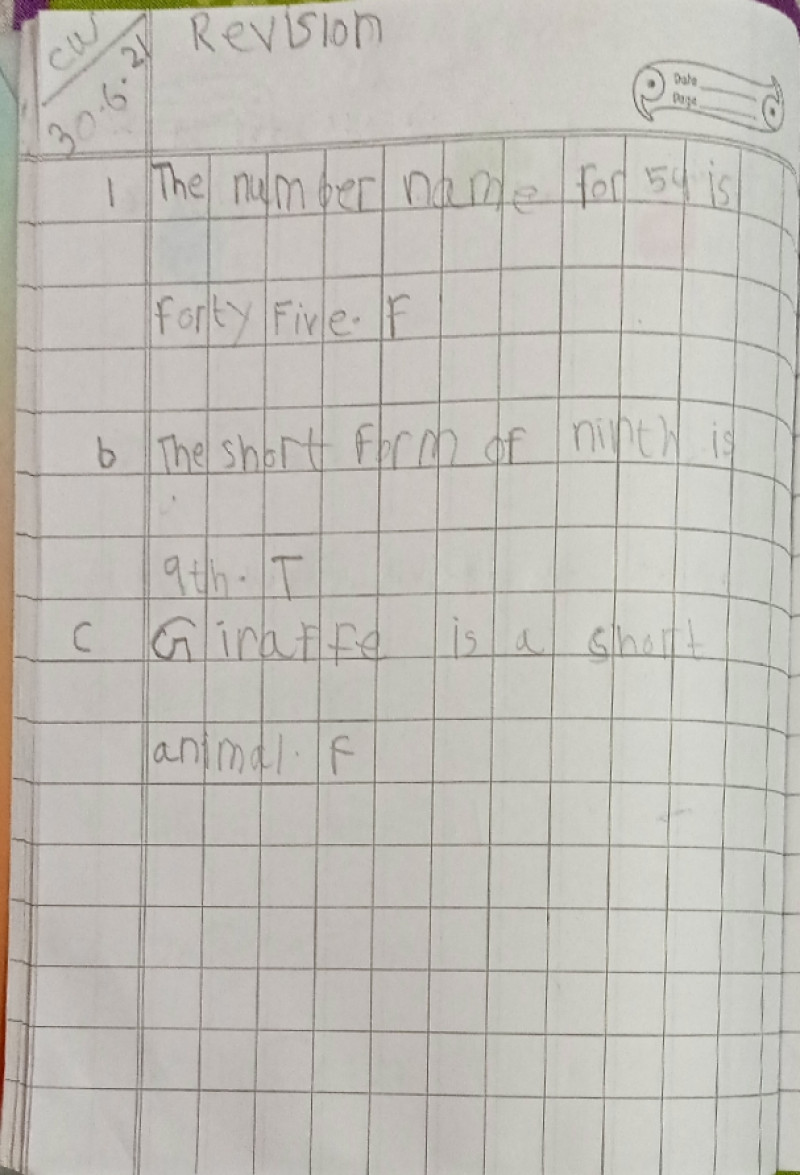 CW Revision
30.6.21
Date
Page
1 The number name for 54 is
Forty Five. F
b The short Form of ninth is
9th. T
C Giraffe is a short
animal. F